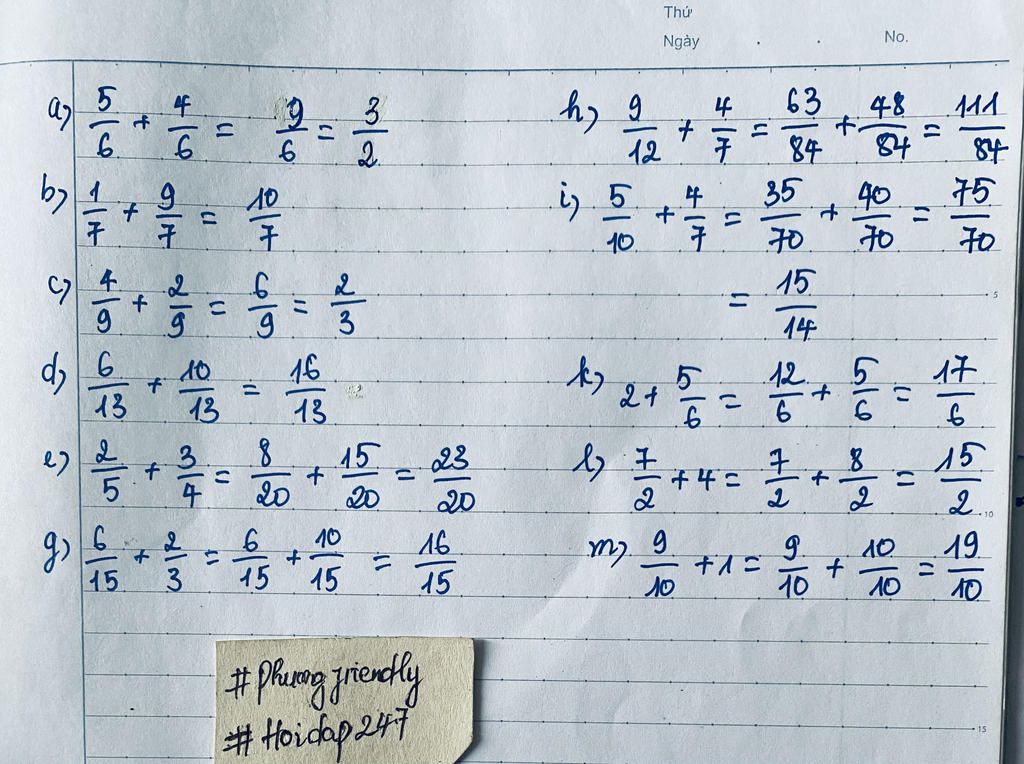 Thứ
Ngày . . No.
a) 5/6 + 4/6 = 9/6 = 3/2
b) 1/7 + 9/7 = 10/7
c) 4/9 + 2/9 = 6/9 = 2/3
d) 6/13 + 10/13 = 16/13
e) 2/5 + 3/4 = 8/20 + 15/20 = 23/20
g) 6/15 + 2/3 = 6/15 + 10/15 = 16/15
h) 9/12 + 4/7 = 63/84 + 48/84 = 111/84
i) 5/10 + 4/7 = 35/70 + 40/70 = 75/70
= 15/14
k) 2 + 5/6 = 12/6 + 5/6 = 17/6
l) 7/2 + 4 = 7/2 + 8/2 = 15/2
m) 9/10 + 1 = 9/10 + 10/10 = 19/10
5
10
15
# Phuong friendly
# Hoidap247